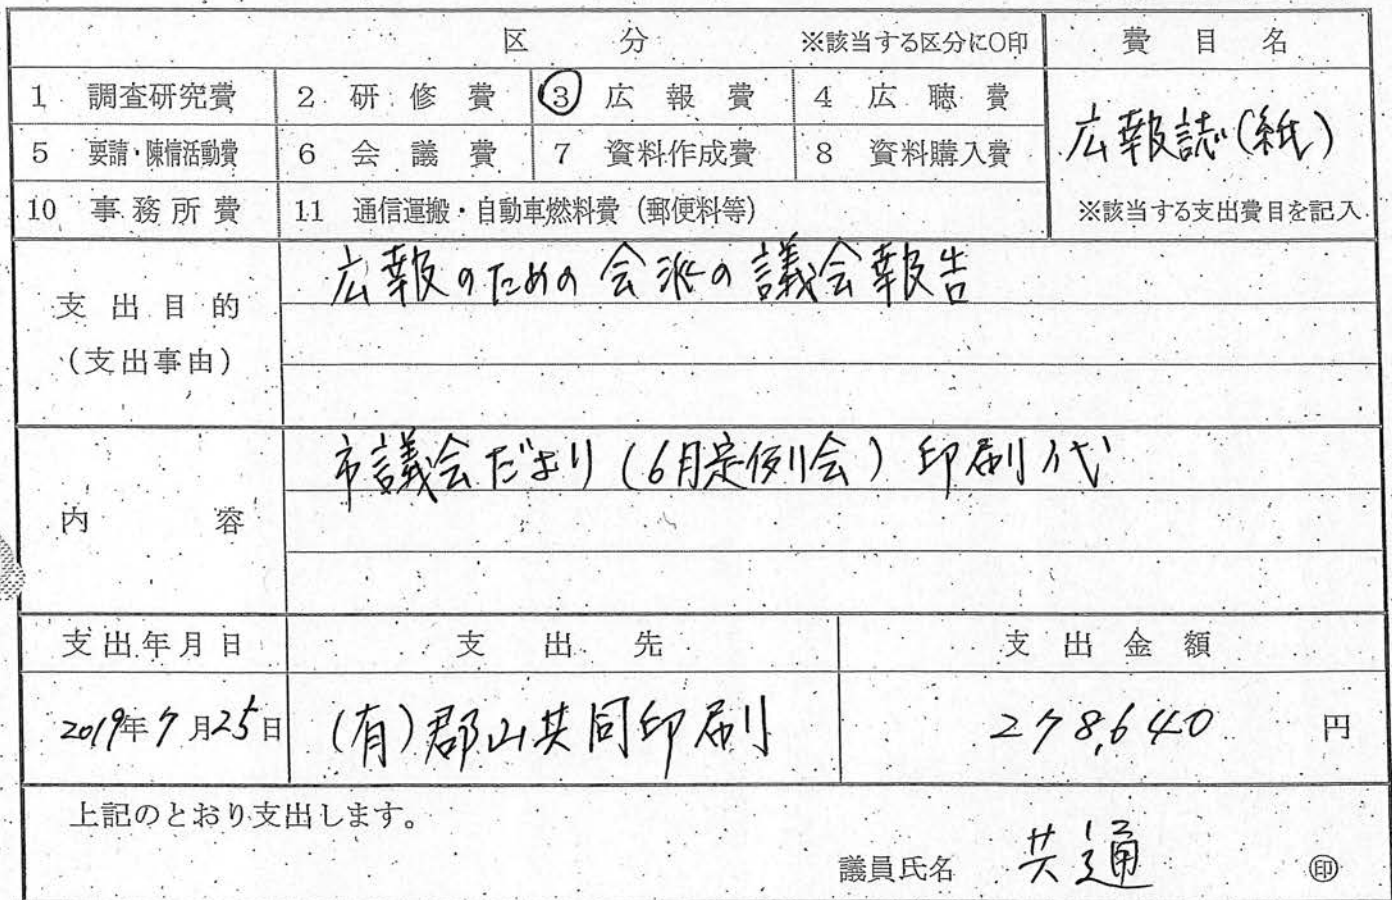 区 分 ※該当する区分に○印 費目名
1 調査研究費 2 研修費 ③ 広報費 4 広聴費
広報誌(紙)
5 要請・陳情活動費 6 会議費 7 資料作成費 8 資料購入費
10 事務所費 11 通信運搬・自動車燃料費(郵便料等) ※該当する支出費目を記入
広報のための会派の議会報告
支出目的
(支出事由)
市議会だより(6月定例会)印刷代
内容
支出年月日 支出先 支出金額
2019年7月25日 (有)郡山共同印刷 278,640 円
上記のとおり支出します。
議員氏名 共通 ㊞